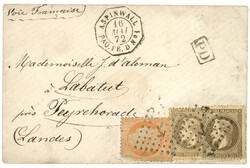 Voie Française
ASPINWALL
16
MAI
72
PAQ. FR. D No 1
PD
Mademoiselle J. d'aleman
à Labatut
près Peyrehorade
(Landes)